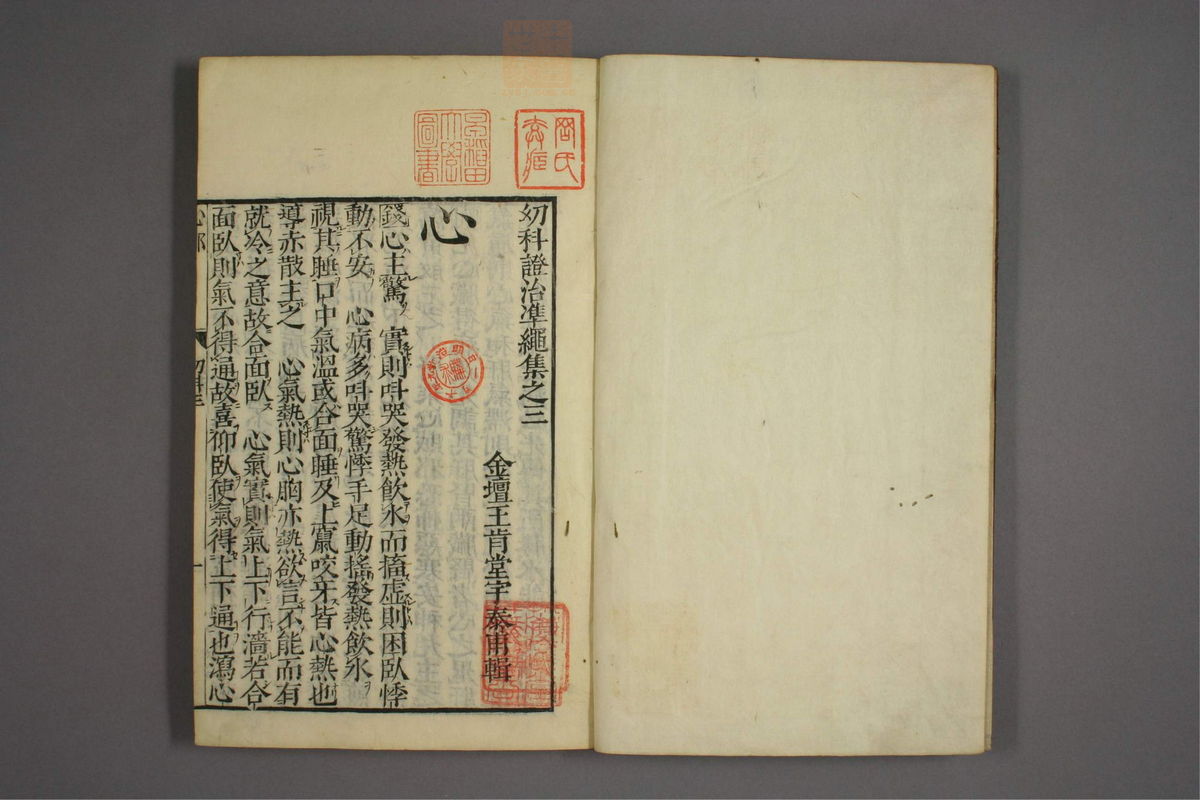 幼科證治準繩集之三
金壇王肯堂宇泰甫輯
心
錢心主驚實則呌哭發熱飲水而搐虛則困臥悸
動不安 心病多呌哭驚悸手足動搖發熱飲水
視其睡口中氣溫或合面睡及上竄咬牙皆心熱也
導赤散主之 心氣熱則心胸亦熱欲言不能而有
就冷之意故合面臥 心氣實則氣上下行濇若合
面臥則氣不得通故喜仰臥使氣得上下通也瀉心
心部
幼科三
一
早稻田大學圖書